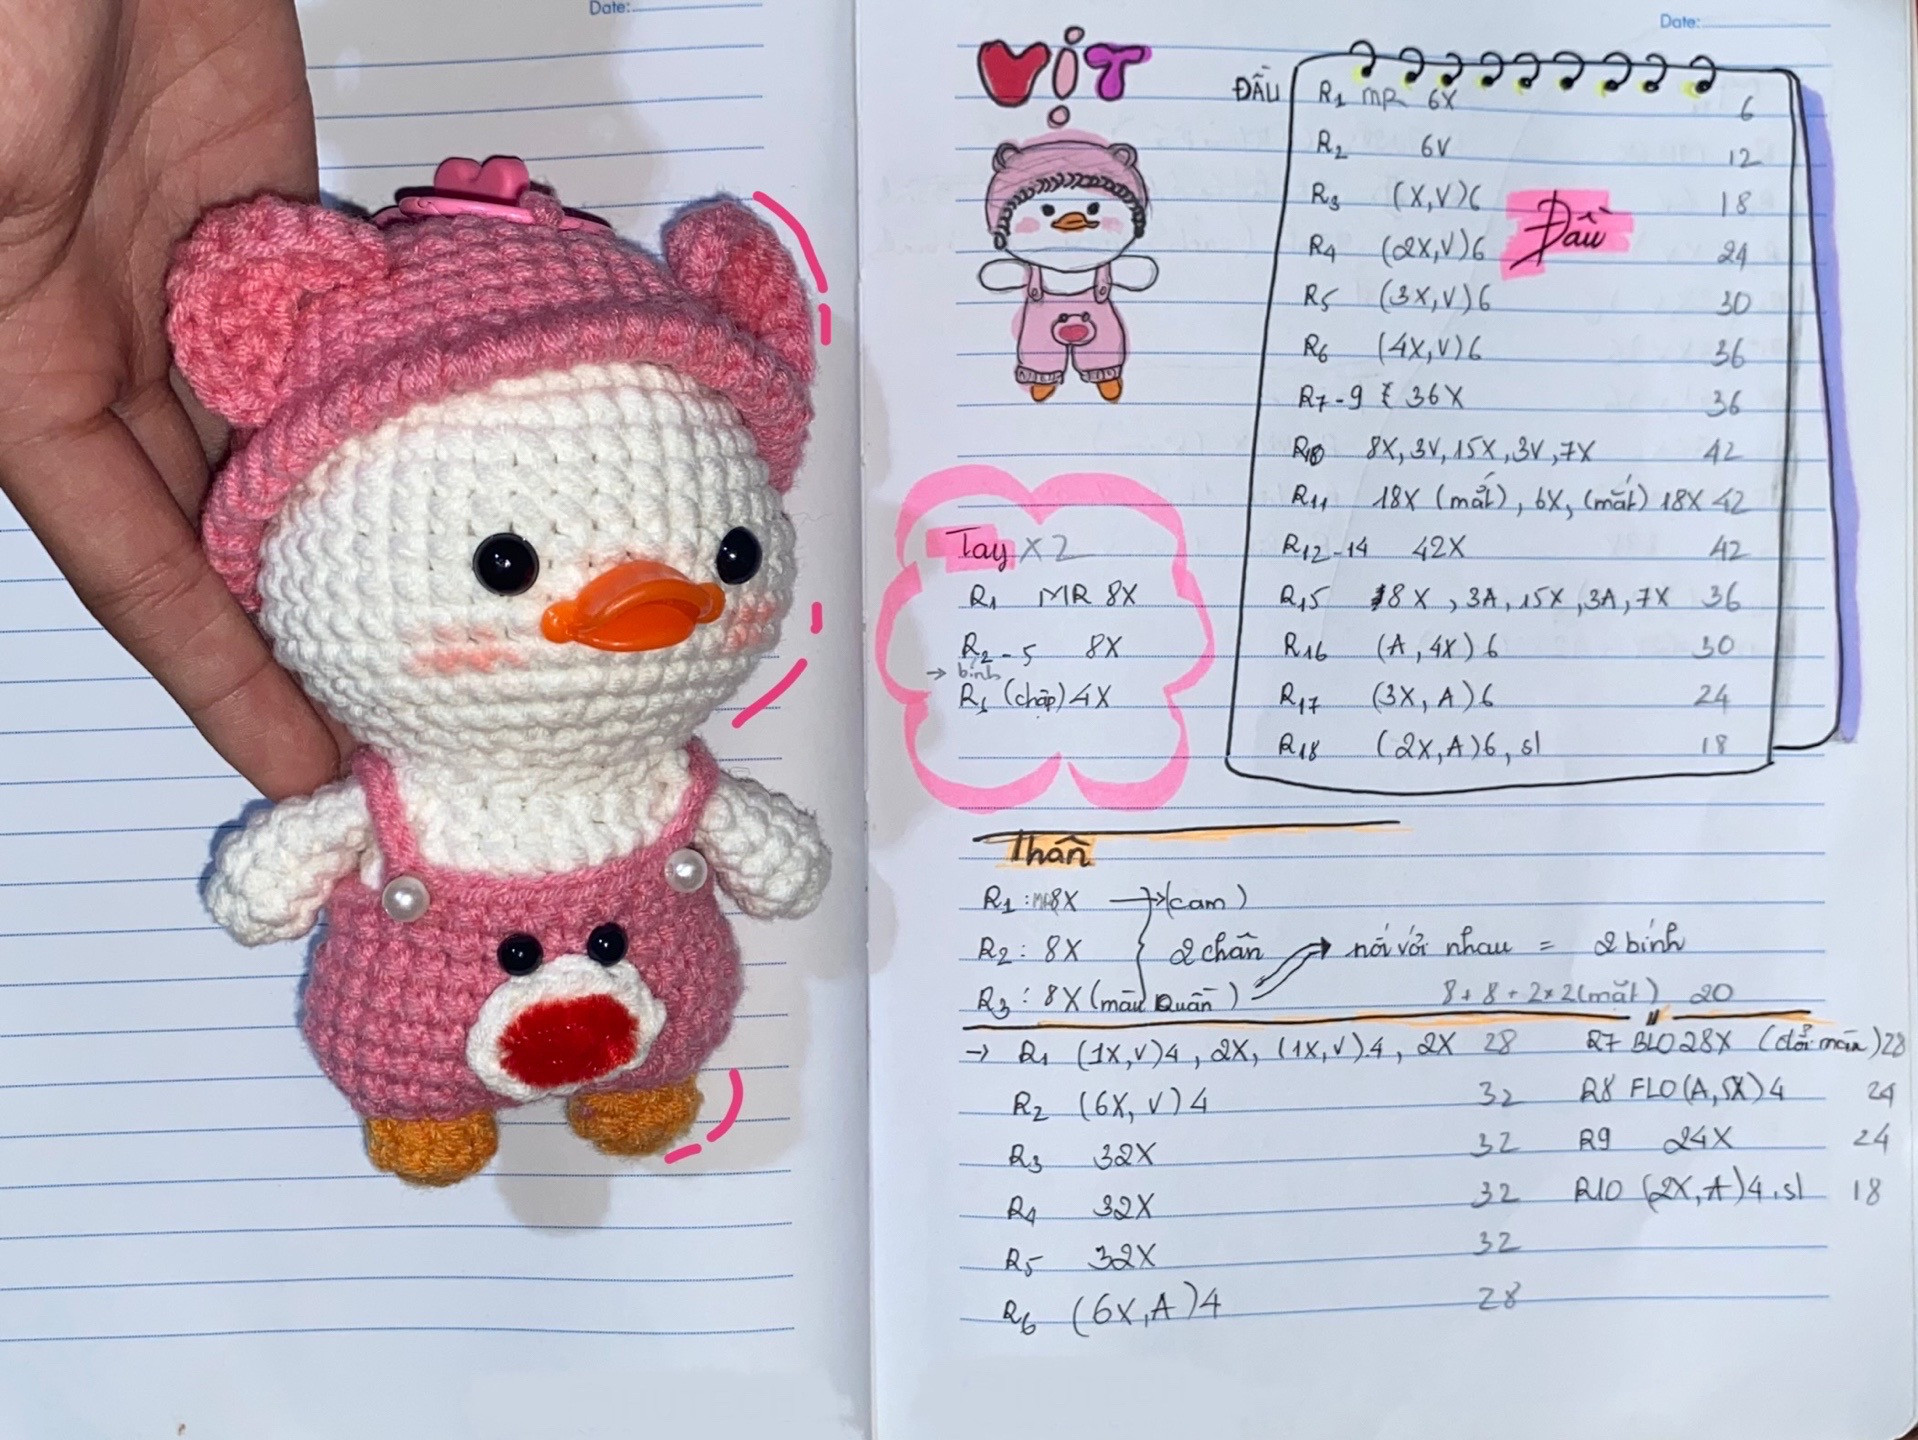 Date:
Date:
VỊT
ĐẦU
R1 MR 6X 6
R2 6V 12
R3 (X,V)6 18
Đầu
R4 (2X,V)6 24
R5 (3X,V)6 30
R6 (4X,V)6 36
R7-9 36X 36
R10 8X, 3V, 15X, 3V, 7X 42
R11 18X (mắt), 6X, (mắt) 18X 42
R12-14 42X 42
R15 8X, 3A, 15X, 3A, 7X 36
R16 (A, 4X)6 30
R17 (3X, A)6 24
R18 (2X, A)6, sl 18
Tay X2
R1 MR 8X
R2-5 8X
→ bính
R6 (chập) 4X
Thân
R1: MR 8X → (cam)
R2: 8X 2 chân → nối với nhau = 2 bính
R3: 8X (màu quần) 8+8+2×2(mặt) 20
→ R1 (1X,V)4, 2X, (1X,V)4, 2X 28
R2 (6X, V)4 32
R3 32X 32
R4 32X 32
R5 32X 32
R6 (6X,A)4 28
R7 BLO 28X (đổi màu) 28
R8 FLO (A, 5X)4 24
R9 24X 24
R10 (2X, A)4, sl 18